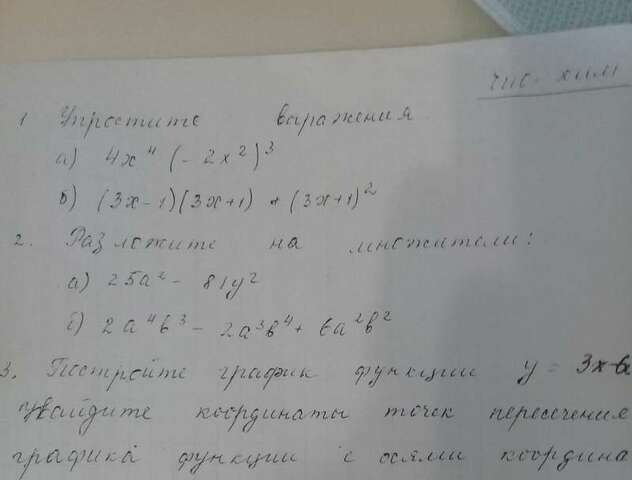 чис. хим
1 Упростите выражения
а) 4x⁴ (- 2x²)³
б) (3x-1)(3x+1) + (3x+1)²
2. Разложите на множители:
а) 25a² - 81y²
б) 2a⁴b³ - 2a³b⁴ + 6a²b²
3. Постройте график функции y = 3x-6
и найдите координаты точек пересечения
графика функции с осями координа